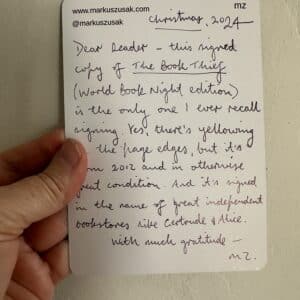 www.markuszusak.com
mz
@markuszusak
Christmas, 2024
Dear Reader – this signed
copy of The Book Thief
(World Book Night edition)
is the only one I ever recall
signing. Yes, there's yellowing
the page edges, but it's
2012 and in otherwise
condition. And it's signed
in the name of great independent
bookstores like Gertrude & Alice.
With much gratitude –
mz.